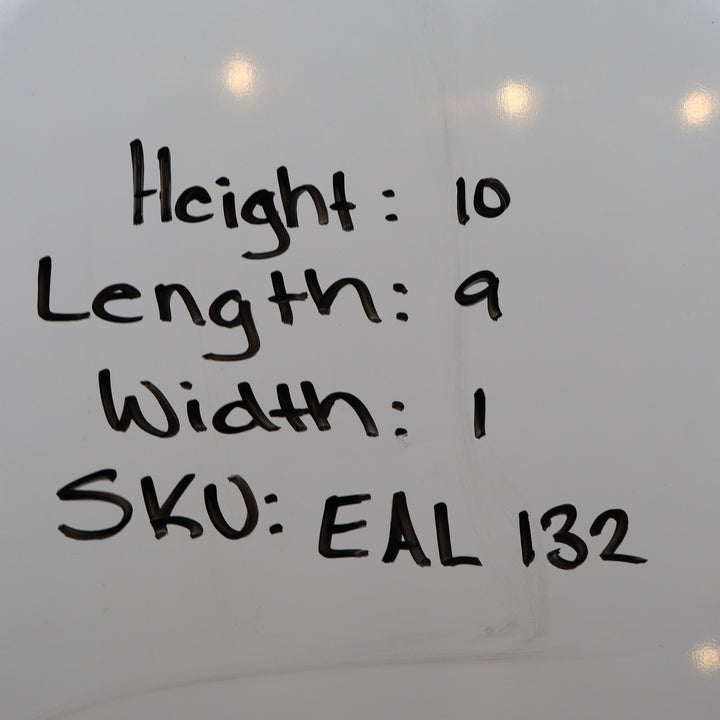 Height: 10
Length: 9
Width: 1
SKU: EAL 132